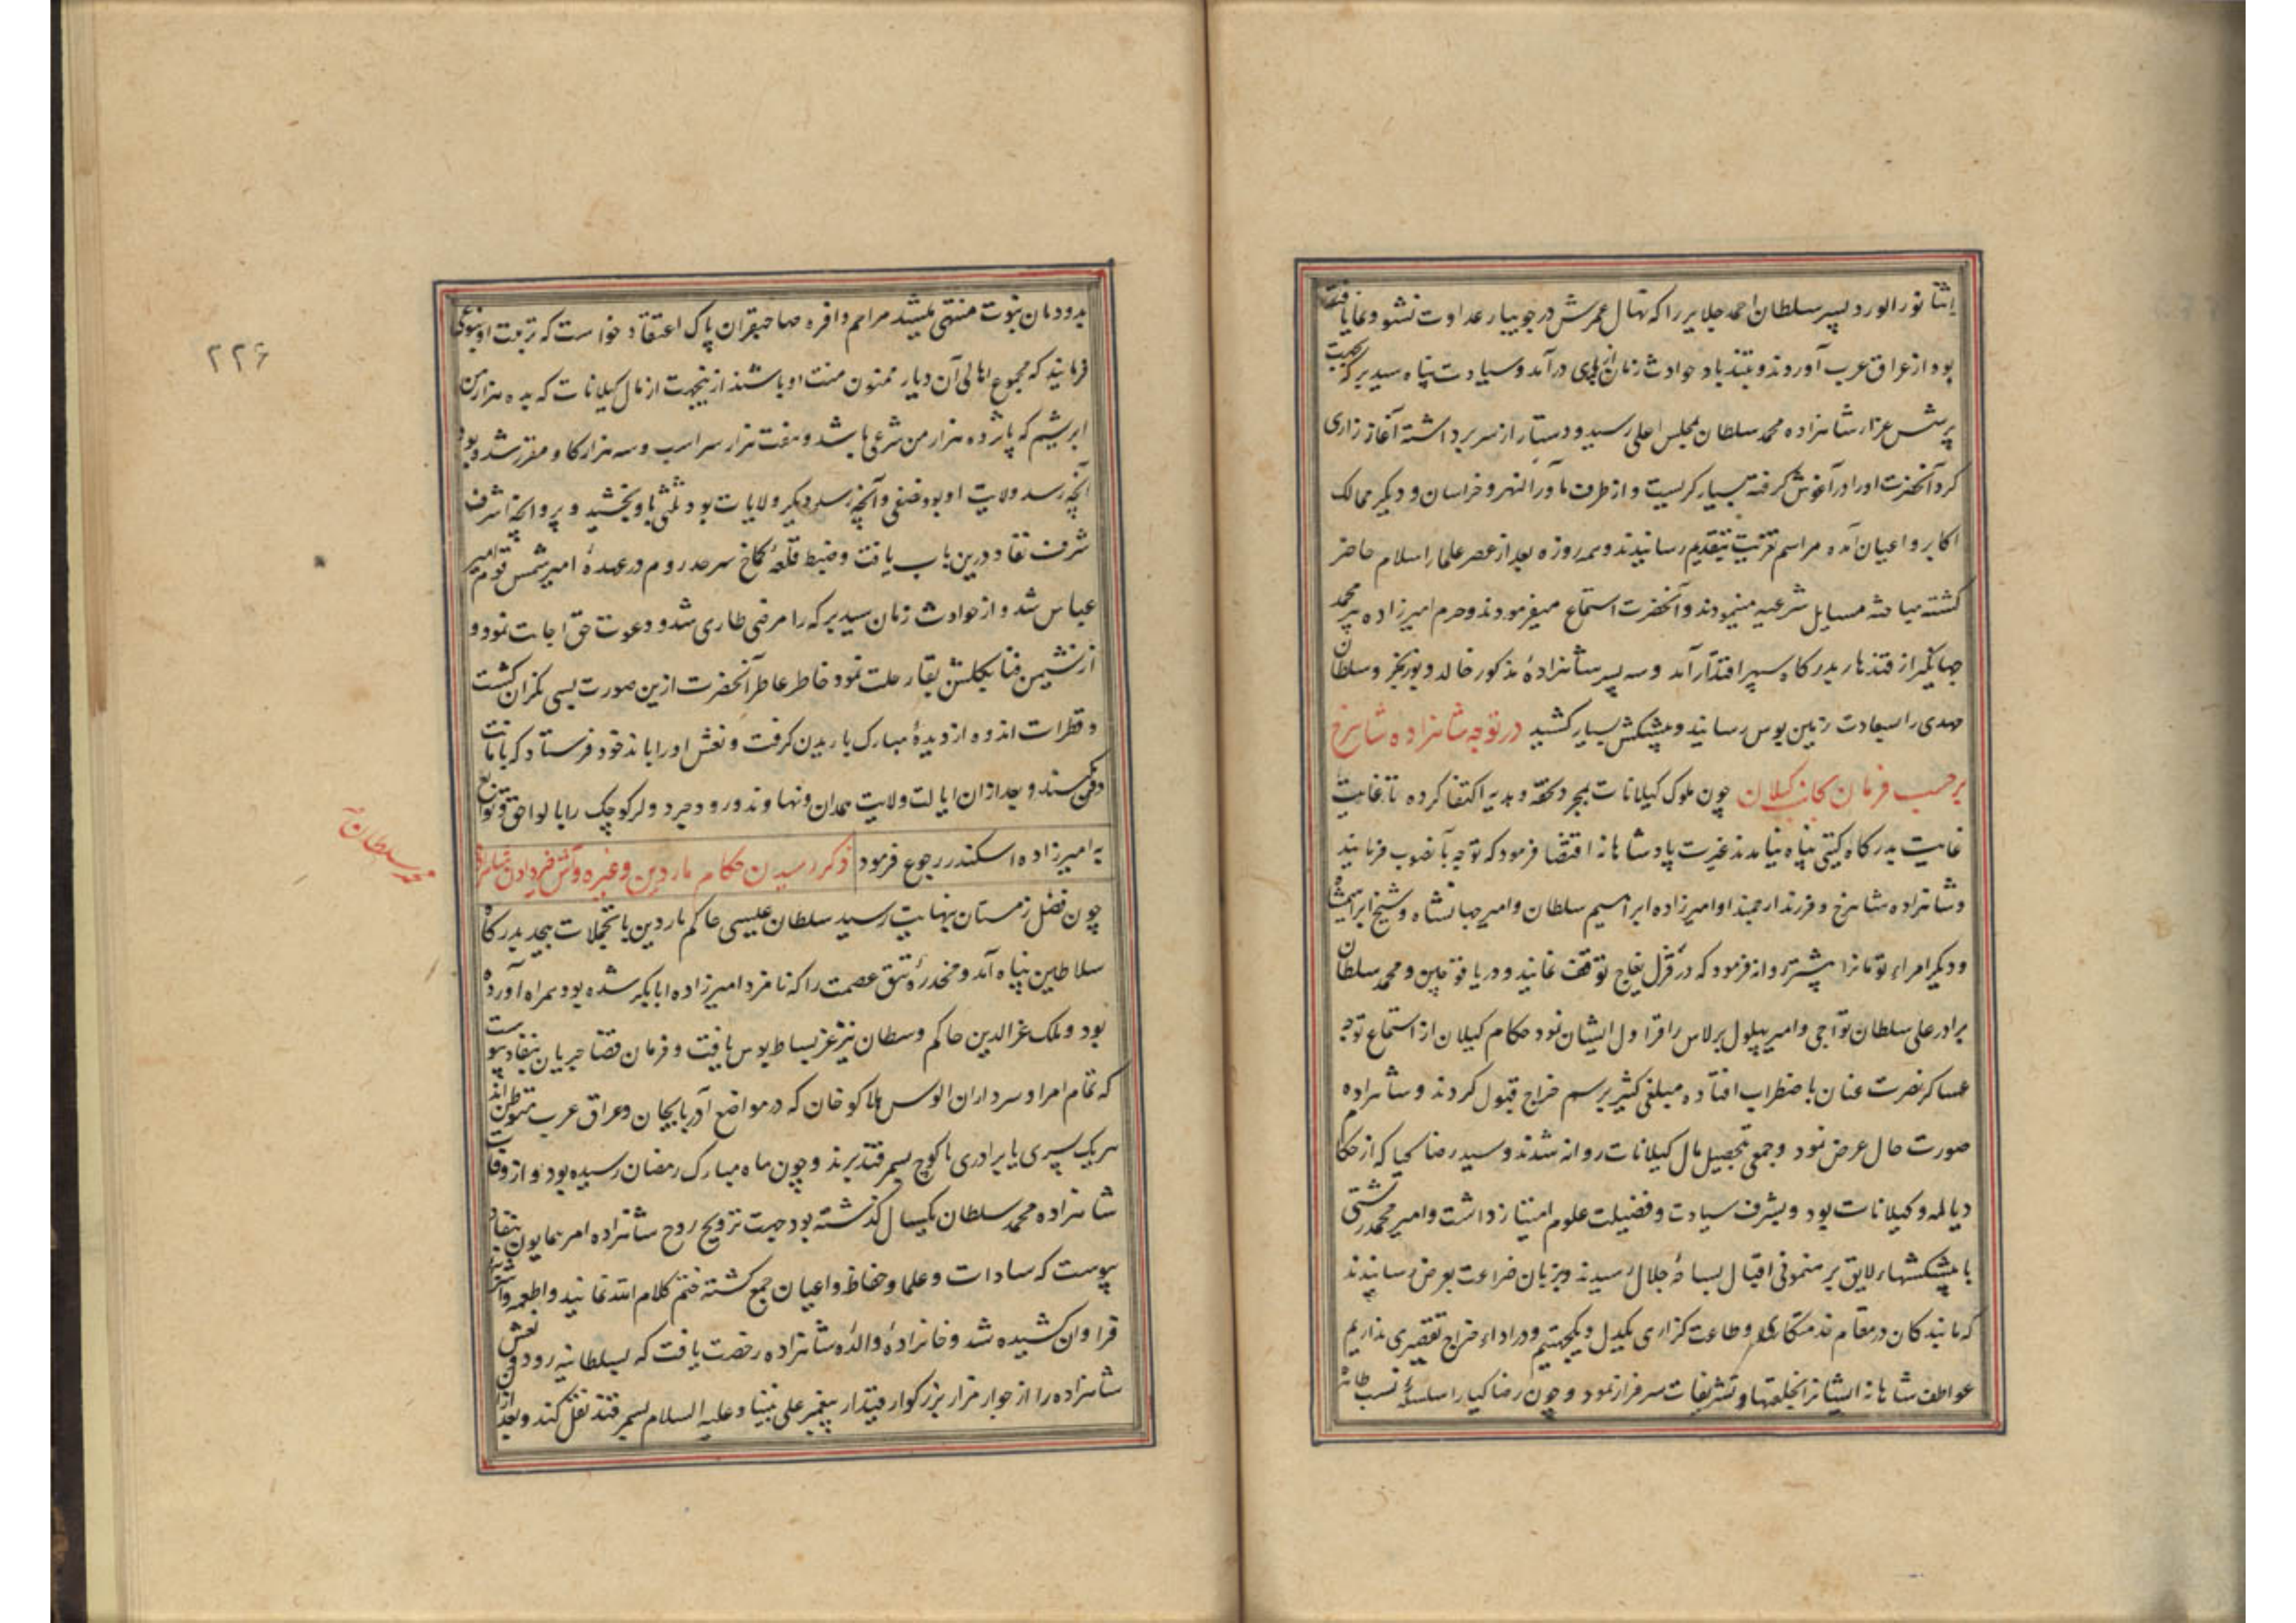 اثنا نور الورد پسر سلطان احمد جلایر را که نهال عمرش در جویبار عداوت نشو و نما یافته
بود از عراق عرب آوردند و بتندباد حوادث زمان از پای درآمد و سیادت پناه سید برکه بجهت
پرسش عزاء شاهزاده محمد سلطان بمجلس اعلی رسید و دستار از سر برداشته آغاز زاری
کرد آنحضرت او را در آغوش گرفته بسیار گریست و از طرف ماوراالنهر و خراسان و دیگر ممالک
اکابر و اعیان آمده مراسم تعزیت بتقدیم رسانیدند و همه روزه بعد از عصر علماء اسلام حاضر
کشته مباحثه مسایل شرعیه مینمودند و آنحضرت استماع میفرمودند و حرم امیرزاده پیر محمد
جهانگیر از قندهار بدرگاه سپهر اقتدار آمد و سه پسر شاهزادهٔ مذکور خالد و بوزنجر و سلطان
مهدی را بسعادت زمین بوس رسانید و پیشکش بسیار کشید در توجه شاهزاده شاهرخ
برحسب فرمان بجانب کیلان چون ملوک کیلانات بمجرد تحفه و هدیه اکتفا کرده تا غایت
غایت بدرگاه گیتی پناه نیامدند غیرت پادشاهانه اقتضا فرمود که توجه بآنصوب فرمانید
و شاهزاده شاهرخ و فرزند ارجمند او امیرزاده ابراهیم سلطان و امیر جهانشاه و شیخ ابراهیمشاه
و دیگر امراء تومانرا پیشتر روانه فرمود که در قزل یغاج توقف نمایند و دریا قوچین و محمد سلطان
برادر علی سلطان تواجی و امیر بهلول برلاس را قراول ایشان نمود حکام کیلان از استماع توجه
عساکر نصرت عنان باضطراب افتاده مبلغی کثیر برسم خراج قبول کردند و شاهزاده
صورت حال عرض نمود و جمعی بتحصیل مال کیلانات روانه شدند و سید رضا کیا که از حکام
دیالمه و کیلانات بود و بشرف سیادت و فضیلت علوم امتیاز داشت و امیر محمد رشتی
با پیشکشهاء لایق بر منمونی اقبال بساحهٔ جلال رسیدند و بزبان ضراعت بعرض رسانیدند
که ما بندکان در مقام خدمتکاری و طاعت گزاری یکدل و یکجهتیم و در اداء خراج تقصیری نداریم
عواطف شاهانه ایشانرا بخلعتها و تشریفات سرفراز نمود و چون رضا کیا را سلسلهٔ نسب طاهره
بدودمان نبوت منتهی میشد مراحم وافره صاحبقران پاک اعتقاد خواست که تربیت او بنوعی
فرمایند که مجموع اهالی آن دیار ممنون منت او باشند ازینجهت از مال کیلانات که بده هزار من
ابریشم که پانزده هزار من شرعی باشد و هفت هزار سر اسب و سه هزار کاو مقرر شده بود
آنچه رسد ولایت او بود نصفی و آنچه رسد دیگر ولایات بود ثلثی باو بخشید و پروانچهٔ اشرف
شرف نفاذ درین باب یافت و ضبط قلعهٔ کماخ سرحد روم در عهدهٔ امیر شمس قوم امیر
عباس شد و از حوادث زمان سید برکه را مرضی طاری شد و دعوت حق اجابت نمود و
از نشیمن فنا بگلشن بقا رحلت نمود خاطر عاطر آنحضرت ازین صورت بسی نگران کشت
و قطرات اندوه از دیدهٔ مبارک باریدن گرفت و نعش او را باندخود فرستاد که بامانت
دفن کنند و بعد از ان ایالت ولایت همدان و نهاوند و روردجرد و لر کوچک را با لواحق و توابع
به امیرزاده اسکندر رجوع فرمود ذکر رسیدن حکام ماردین و غیره و آش دادن
چون فصل زمستان بنهایت رسید سلطان عیسی حاکم ماردین با تجملات بیحد بدرگاه
سلاطین پناه آمد و مخدرهٔ تتق عصمت را که نامزد امیرزاده ابابکر شده بود همراه آورده
بود و ملک عزالدین حاکم وسطان نیز عز بساط بوس یافت و فرمان قضا جریان بنفاذ پیوست
که تمام امرا و سرداران الوس هلاکو خان که در مواضع آذربایجان و عراق عرب متوطن اند
هر یک پسری یا برادری با کوچ بسمرقند برند و چون ماه مبارک رمضان رسیده بود و از وفات
شاهزاده محمد سلطان یکسال گذشته بود جهت ترویح روح شاهزاده امر همایون بنفاذ
پیوست که سادات و علما و حفاظ و اعیان جمع کشته ختم کلام الله نمایند و اطعمه و اشربه
فراوان کشیده شد و خانزادهٔ والدهٔ شاهزاده رخصت یافت که بسلطانیه رود و نعش
شاهزاده را از جوار مزار بزرگوار قیدار پیغمبر علی نبینا و علیه السلام بسمرقند نقل کند و بعد از ان
۲۲۶